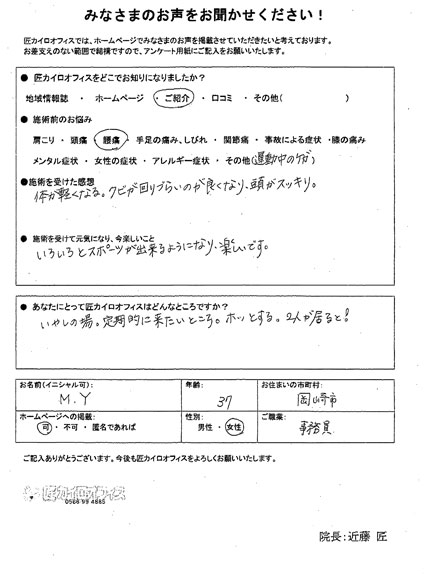 みなさまのお声をお聞かせください！
匠カイロオフィスでは、ホームページでみなさまのお声を掲載させていただきたいと考えております。
お差支えのない範囲で結構ですので、アンケート用紙にご記入をお願いいたします。
● 匠カイロオフィスをどこでお知りになりましたか？
地域情報誌 ・ ホームページ ・ご紹介 ・口コミ ・その他( )
● 施術前のお悩み
肩こり ・ 頭痛 ・ 腰痛 ・ 手足の痛み、しびれ ・ 関節痛 ・ 事故による症状 ・膝の痛み
メンタル症状 ・ 女性の症状 ・ アレルギー症状 ・ その他(運動中のケガ)
●施術を受けた感想
体が軽くなる。クビが回りづらいのが良くなり、頭がスッキリ。
● 施術を受けて元気になり、今楽しいこと
いろいろとスポーツが出来るようになり、楽しいです。
● あなたにとって匠カイロオフィスはどんなところですか？
いやしの場。定期的に来たいところ。ホッとする。2人が居ると!
お名前(イニシャル可)： 年齢： お住まいの市町村：
M.Y 37 岡崎市
ホームページへの掲載： 性別： ご職業：
可 ・ 不可 ・ 匿名であれば 男性 ・ 女性 事務員
ご記入ありがとうございます。今後も匠カイロオフィスをよろしくお願いいたします。
匠カイロオフィス
0566 99 4885
院長：近藤 匠